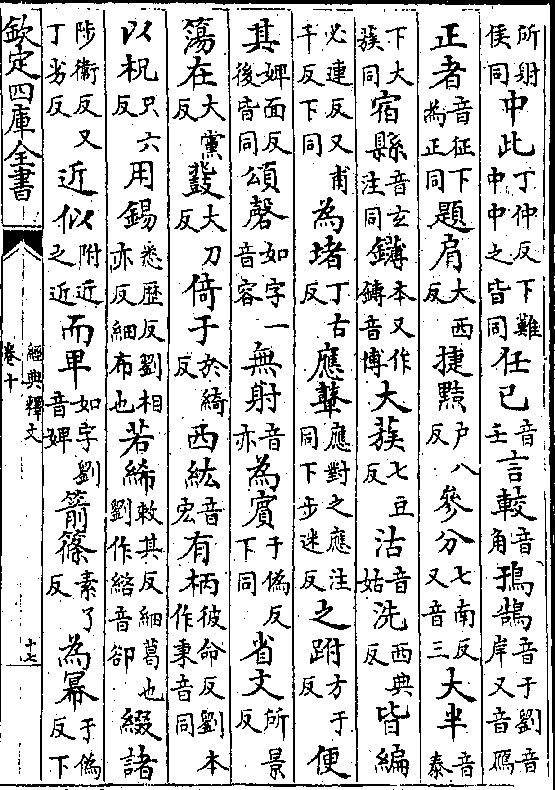 所射侯同中此丁仲反下難中中之皆同任已音壬言較音角鳱鵠音于劉音岸又音鴈
正者音征下為正同題肩大西反捷黠戶八反參分七南反又音三大半音泰
下大蔟同宿縣音玄注同鑮本又作鏄音博大蔟七豆反沽音姑洗西典反皆編
必連反又甫千反下同為堵丁古反應鼙應對之應注同下步迷反之跗方于反便
其婢面反後音同頌磬如字一音容無射音亦為賓于偽反下同省文所景反
簜在大黨反鼗大刀反倚于於綺反西紘音宏有柄彼命反劉本作秉音同
以柷只六反用錫悉歷反劉相亦反細布也若絺敕其反細葛也劉作綌音卻綴諸
陟衛反又丁劣反近似附近之近而卑如字劉音婢箭篠素了反為冪于偽反下
欽定四庫全書
經典釋文
卷十
十七